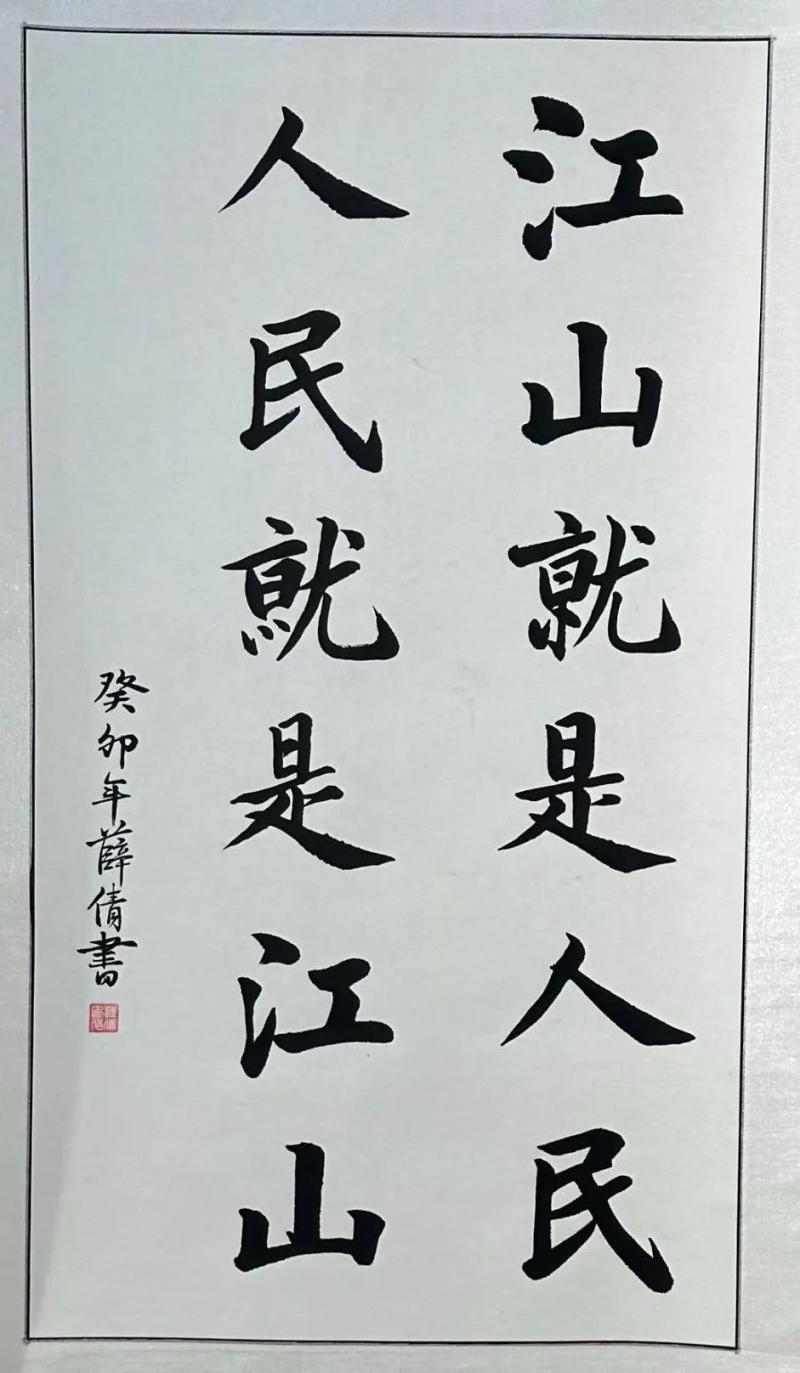 江山就是人民
人民就是江山
癸卯年薛倩書